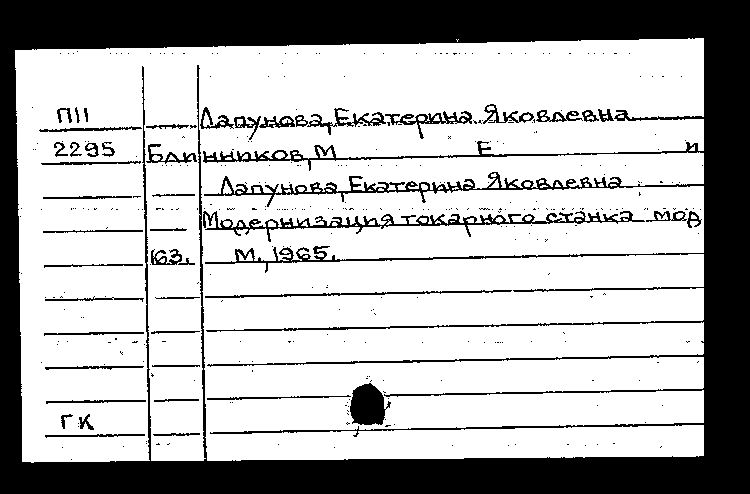 П11 Лапунова, Екатерина Яковлевна
2295 Блинников, М Е и
Лапунова, Екатерина Яковлевна
Модернизация токарного станка мод
163. М., 1965.
ГК